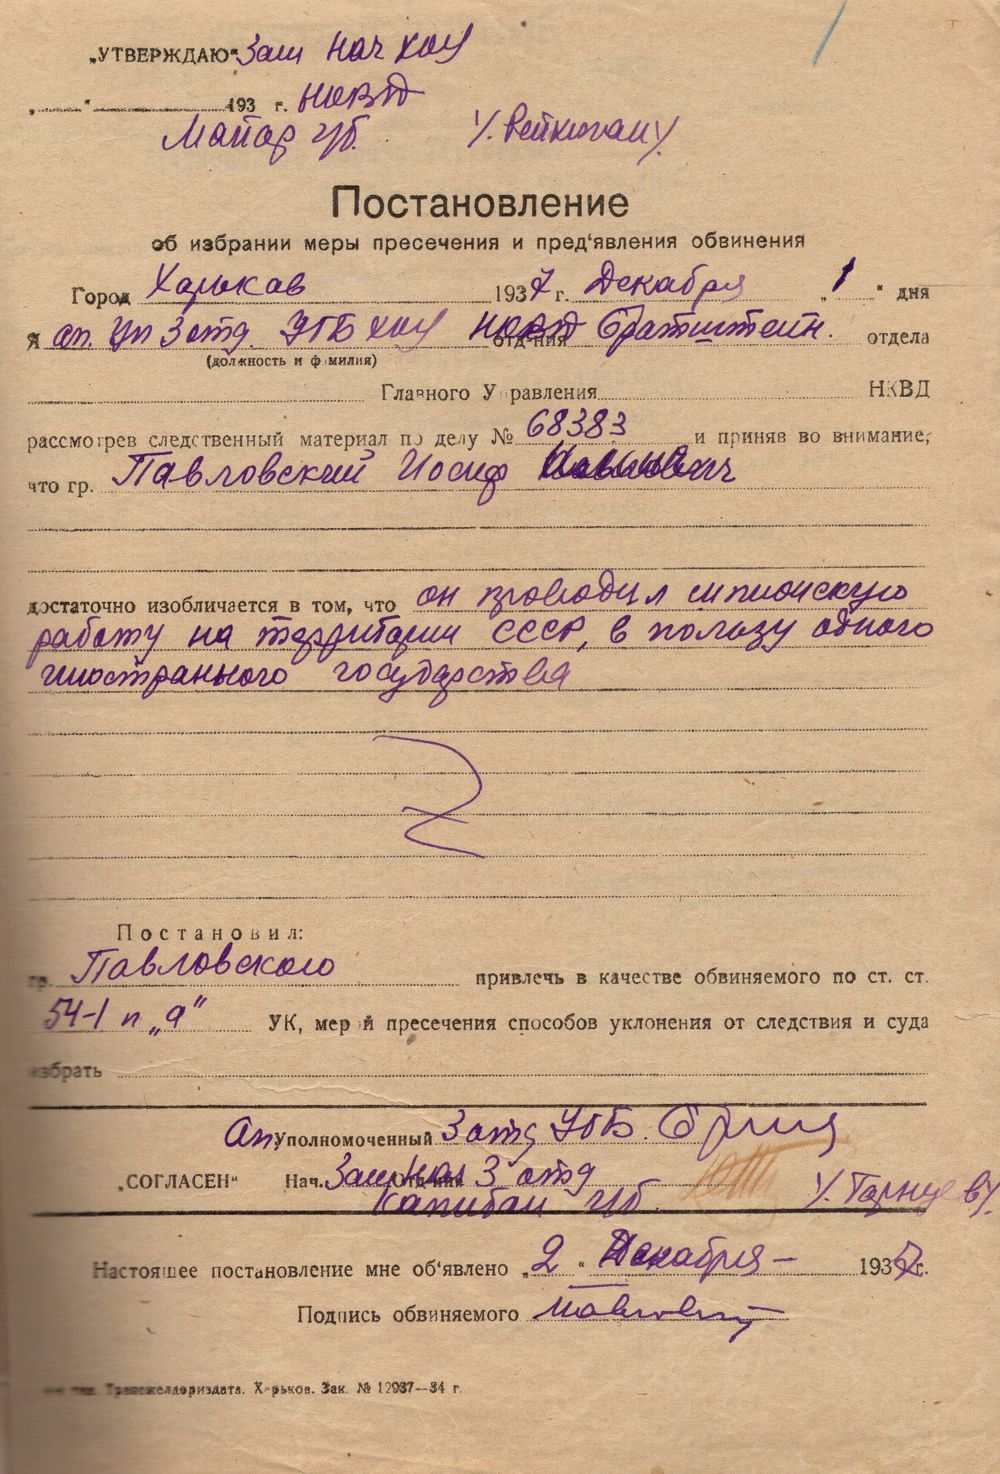 „УТВЕРЖДАЮ“ Зам нач ХОУ
„ “ 193 г. НКВД
Майор ГБ. /Рейхман/
Постановление
об избрании меры пресечения и пред‘явления обвинения
Город Харьков 1937 г. Декабря „1“ дня
Я оп. Уп 3 отд. УГБ ХОУ НКВД отд-ния Братштейн. отдела
(должность и фамилия)
Главного Управления НКВД
рассмотрев следственный материал по делу № 68383 и приняв во внимание,
что гр. Павловский Иосиф
достаточно изобличается в том, что он проводил шпионскую
работу на территории СССР, в пользу одного
иностранного государства
Постановил:
гр. Павловского привлечь в качестве обвиняемого по ст. ст.
54-1 п „а“ УК, мерой пресечения способов уклонения от следствия и суда
избрать
Оп. Уполномоченный 3 отд УГБ.
„СОГЛАСЕН“ Нач. Зам Нач 3 отд
Капитан ГБ /Торнуев/
Настоящее постановление мне об‘явлено „2“ Декабря – 1937 г.
Подпись обвиняемого
тип. Трансжелдориздата. Харьков. Зак. № 12937—34 г.